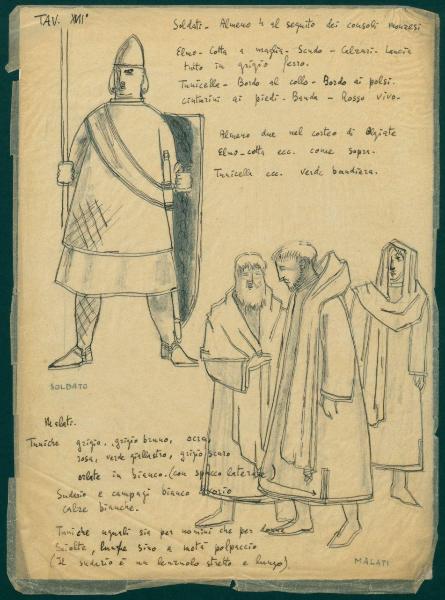 TAV. XVII°
Soldati - Almeno 4 al seguito dei consoli monzesi
Elmo - Cotta a maglia - Scudo - Calzari - Lancia
tutto in grigio ferro.
Tunicella - Bordo al collo - Bordo ai polsi.
cinturini ai piedi - Banda - Rosso vivo -
Almeno due nel corteo di Algiate
Elmo - cotta ecc. come sopra.
Tunicella ecc. verde bandiera.
SOLDATO
Malati.
Tuniche grigio, grigio bruno, ocra,
rosa, verde giallastro, grigio scuro
orlate in bianco. (con spacco laterale)
Sudario e campagi bianco avorio
calze bianche.
Tuniche uguali sia per uomini che per donne
Sciolte, lunghe sino a metà polpaccio
(il sudario è un lenzuolo stretto e lungo).
MALATI